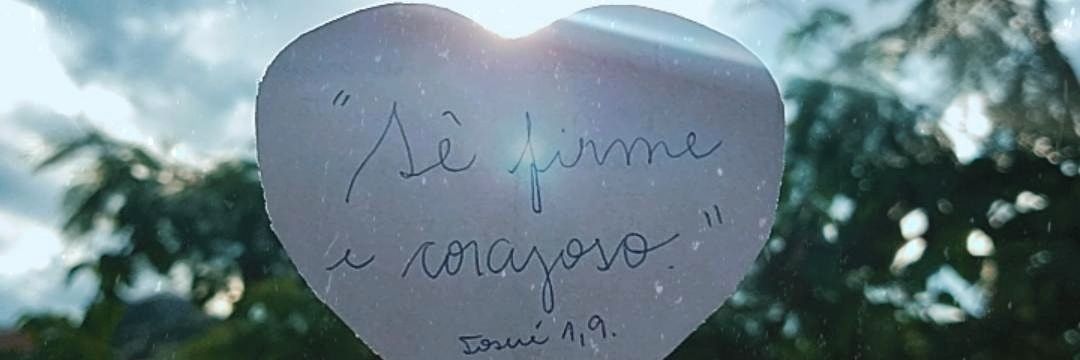 "Sê firme
e corajoso."
Josué 1,9.